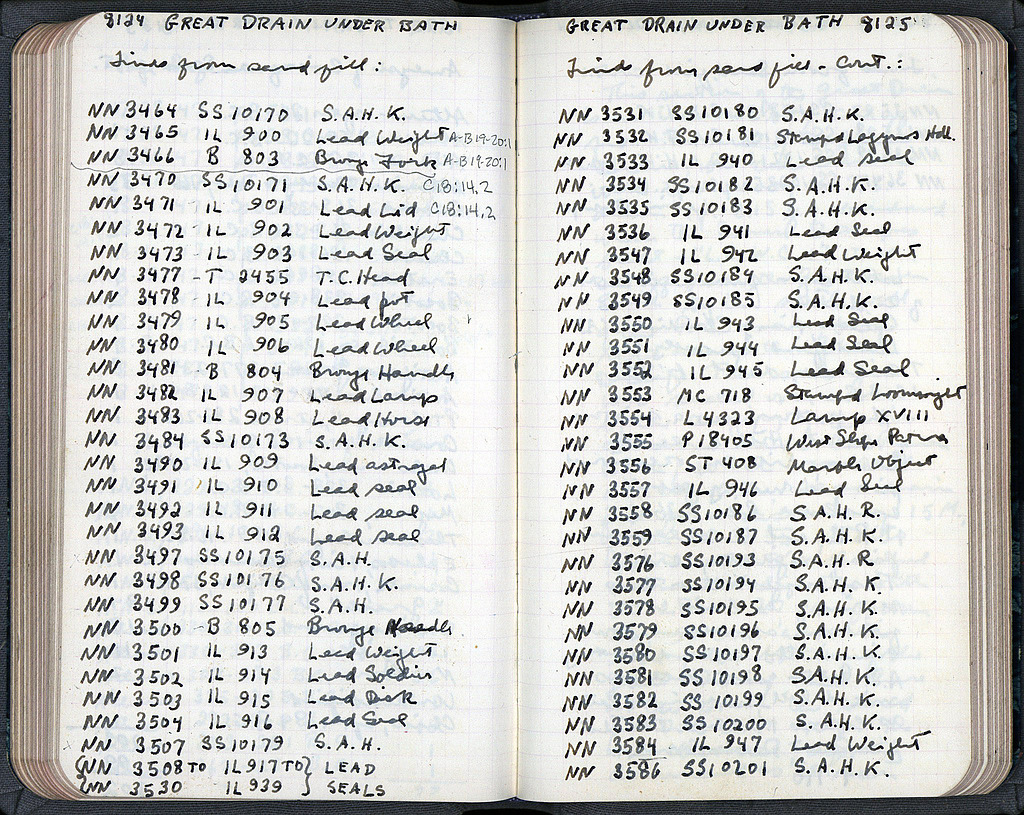 8124 GREAT DRAIN UNDER BATH
Finds from sand fill:
NN 3464 SS 10170 S.A.H.K.
NN 3465 IL 900 Lead Weight A-B 19-20:1
NN 3466 B 803 Bronze Fork A-B 19-20:1
NN 3470 SS 10171 S.A.H.K. C18:14.2
NN 3471 IL 901 Lead Lid C18:14.2
NN 3472 IL 902 Lead Weight
NN 3473 IL 903 Lead Seal
NN 3477 T 2455 T.C. Head
NN 3478 IL 904 Lead
NN 3479 IL 905 Lead Wheel
NN 3480 IL 906 Lead Wheel
NN 3481 B 804 Bronze Handle
NN 3482 IL 907 Lead Lamp
NN 3483 IL 908 Lead Horse
NN 3484 SS 10173 S.A.H.K.
NN 3490 IL 909 Lead astragal
NN 3491 IL 910 Lead seal
NN 3492 IL 911 Lead seal
NN 3493 IL 912 Lead seal
NN 3497 SS 10175 S.A.H.
NN 3498 SS 10176 S.A.H.K.
NN 3499 SS 10177 S.A.H.
NN 3500 B 805 Bronze Needle
NN 3501 IL 913 Lead Weight
NN 3502 IL 914 Lead Soldier
NN 3503 IL 915 Lead Disk
NN 3504 IL 916 Lead Seal
NN 3507 SS 10179 S.A.H.
NN 3508 TO IL 917 TO } LEAD
NN 3530 IL 939 } SEALS
GREAT DRAIN UNDER BATH 8125
Finds from sand fill - Cont.:
NN 3531 SS 10180 S.A.H.K.
NN 3532 SS 10181 Stamped Lagynos Hdl.
NN 3533 IL 940 Lead seal
NN 3534 SS 10182 S.A.H.K.
NN 3535 SS 10183 S.A.H.K.
NN 3536 IL 941 Lead Seal
NN 3547 IL 942 Lead Weight
NN 3548 SS 10184 S.A.H.K.
NN 3549 SS 10185 S.A.H.K.
NN 3550 IL 943 Lead Seal
NN 3551 IL 944 Lead Seal
NN 3552 IL 945 Lead Seal
NN 3553 MC 718 Stamped Loomweight
NN 3554 L 4323 Lamp XVIII
NN 3555 P 18405 West Slope Patera
NN 3556 ST 408 Marble Object
NN 3557 IL 946 Lead Seal
NN 3558 SS 10186 S.A.H.R.
NN 3559 SS 10187 S.A.H.K.
NN 3576 SS 10193 S.A.H.R
NN 3577 SS 10194 S.A.H.K
NN 3578 SS 10195 S.A.H.K.
NN 3579 SS 10196 S.A.H.K.
NN 3580 SS 10197 S.A.H.K.
NN 3581 SS 10198 S.A.H.K.
NN 3582 SS 10199 S.A.H.K.
NN 3583 SS 10200 S.A.H.K.
NN 3584 IL 947 Lead Weight
NN 3586 SS 10201 S.A.H.K.